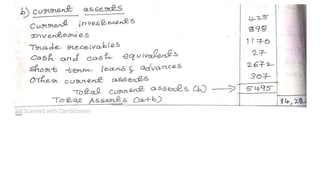 b) current asserts
Current investments 425
Inventories 898
Trade receivables 1170
Cash and cash equivalents 27
Short term loans & advances 2672
Other current asserts 307
Total current asserts (b) → 5495
Total Asserts (a+b)
Scanned with CamScanner